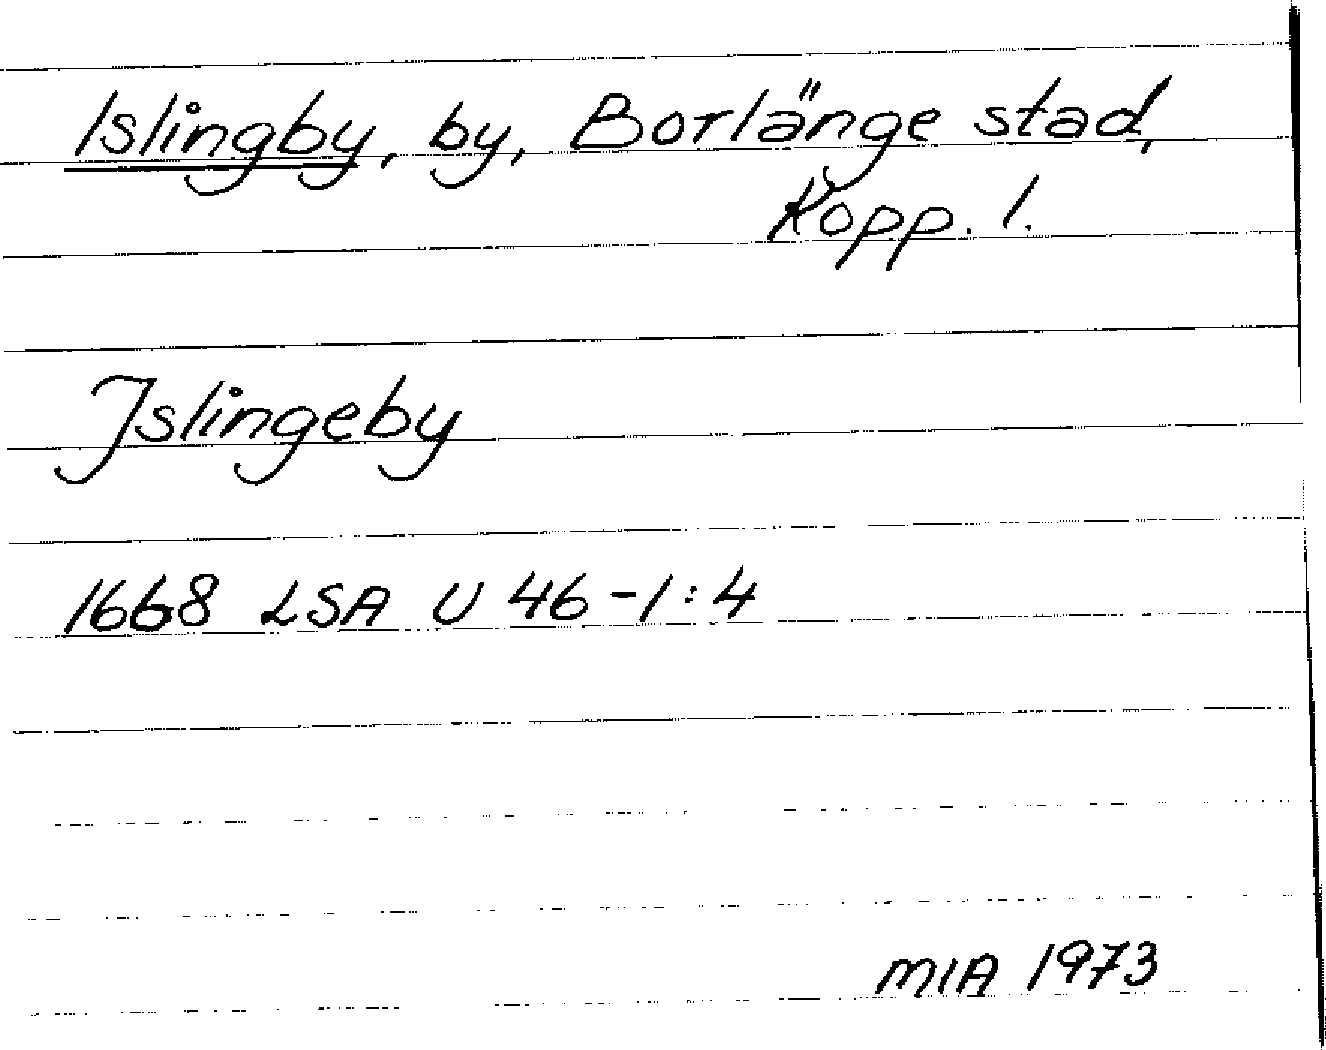 Islingby, by, Borlänge stad,
Kopp. l.
Jslingeby
1668 LSA U 46-1:4
MIA 1973